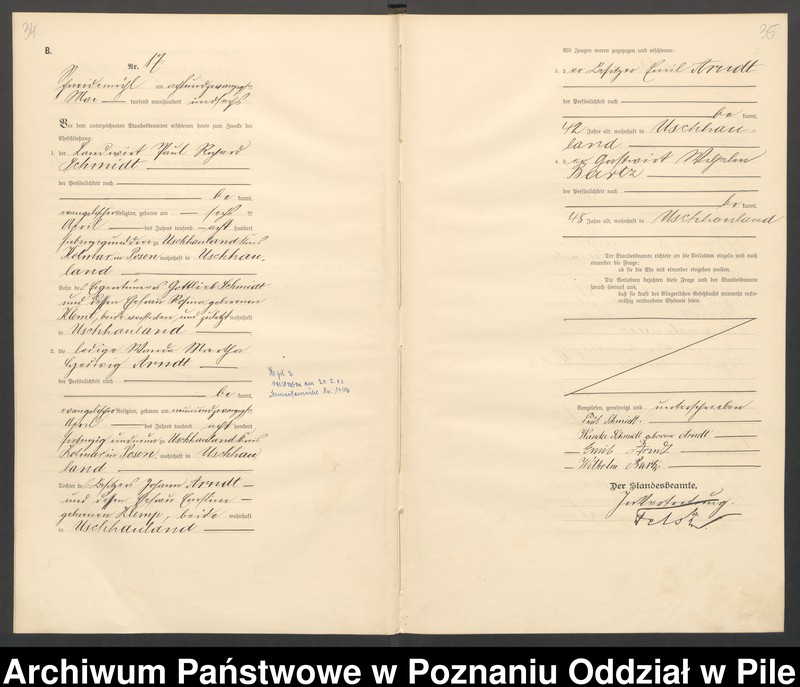 34
B.
Nr. 17
Schneidemühl am achtundzwanzigsten
Mai tausend neunhundert undsechs
Vor dem unterzeichneten Standesbeamten erschienen heute zum Zwecke der
Eheschließung:
1. der Landwirt Paul Richard
Schmidt
der Persönlichkeit nach
be kannt,
evangelischer Religion, geboren am
April des Jahres tausend acht hundert
zu Uschhauland Kreis
Kolmar in Posen, wohnhaft in Uschhau-
land
Sohn des Eigentümers Gottlieb Schmidt
und dessen Ehefrau Rosina geborenen
Klemt, beide verstorben und zuletzt wohnhaft
in Uschhauland
2. die ledige Wanda Martha
Hedwig Arndt
der Persönlichkeit nach
be kannt,
evangelischer Religion, geboren am neunundzwanzigsten
April des Jahres tausend acht hundert
siebenzig und neun zu Uschhauland Kreis
Kolmar in Posen, wohnhaft in Uschhau
land
Tochter des Besitzers Johann Arndt
und dessen Ehefrau Ernstine
geborenen Klemp, beide wohnhaft
in Uschhauland
35
Als Zeugen waren zugezogen und erschienen:
3. der Besitzer Emil Arndt
der Persönlichkeit nach
be kannt,
42 Jahre alt, wohnhaft in Uschhau-
land
4. der Gastwirt Wilhelm
Bartz
der Persönlichkeit nach
be kannt,
48 Jahre alt, wohnhaft in Uschhauland
Der Standesbeamte richtete an die Verlobten einzeln und nach
einander die Frage:
ob sie die Ehe mit einander eingehen wollen.
Die Verlobten bejahten diese Frage und der Standesbeamte
sprach hierauf aus,
daß sie kraft des Bürgerlichen Gesetzbuchs nunmehr recht-
mäßig verbundene Eheleute seien.
Vorgelesen, genehmigt und unterschrieben
Paul Schmidt.
Wanda Schmidt geborene Arndt
Emil Arndt
Wilhelm Bartz
Der Standesbeamte.
In Vertretung.
Archiwum Państwowe w Poznaniu Oddział w Pile